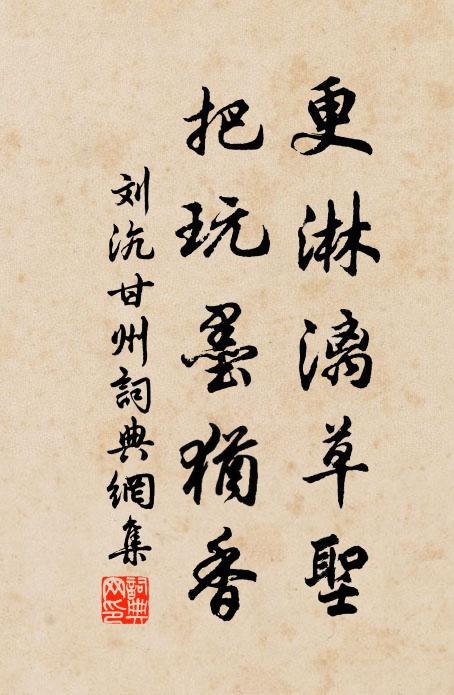 更淋漓草聖
把玩墨猶香
刘沆甘州詞典網集
詞典网印